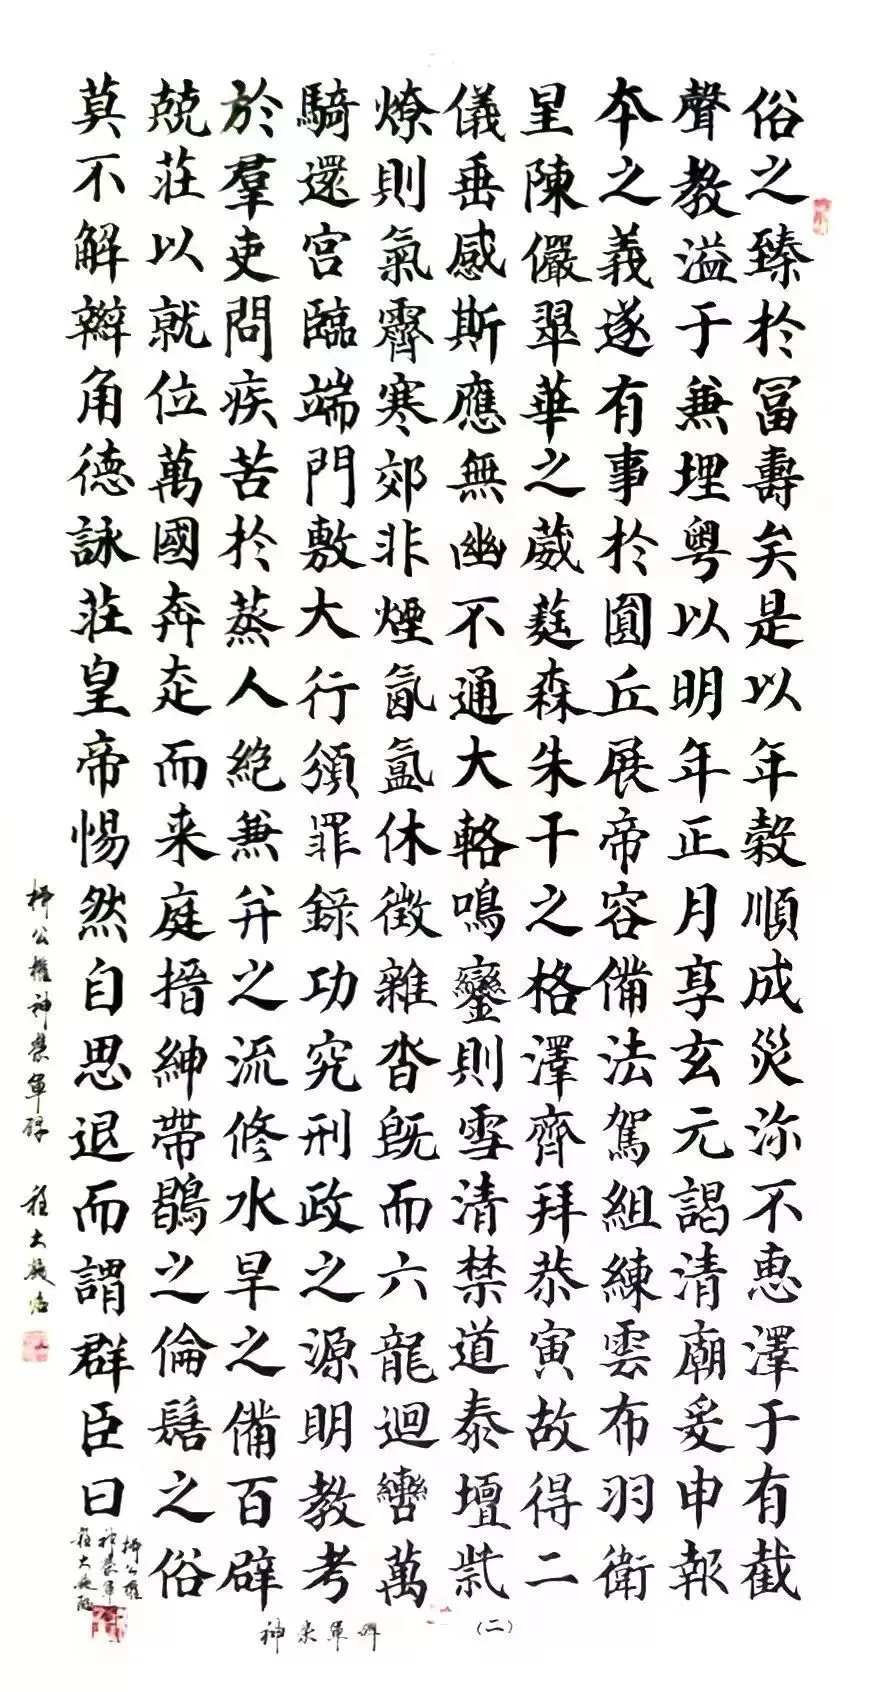 俗之臻於冨壽矣是以年糓順成災沴不恵澤于有截
聲教溢于無埋粵以明年正月享玄元謁清廟爰申報
本之義遂有事於圓丘展帝容備法駕組練雲布羽衛
星陳儼翠華之葳蕤森朱干之格澤齊拜恭寅故得二
儀垂感斯應無幽不通大輅鳴鑾則雪清禁道泰壇祡
燎則氣霽寒郊非煙氤氳休徴雜沓既而六龍迴轡萬
騎還宮臨端門敷大行頒罪錄功究刑政之源明教考
於羣吏問疾苦於蒸人絕兼并之流修水旱之備百辟
兢莊以就位萬國奔走而来庭搢紳帶鶡之倫髽之俗
莫不解辮角德詠莊皇帝惕然自思退而謂群臣曰
柳公權神策軍碑 程大殿臨
柳公權
神策軍
程大殿臨
神策軍碑 (二)